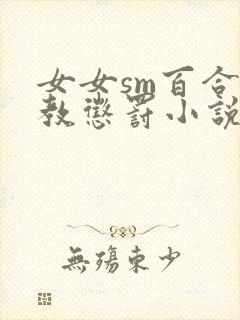 女女sm百合
教懲罰小說
無殤東少